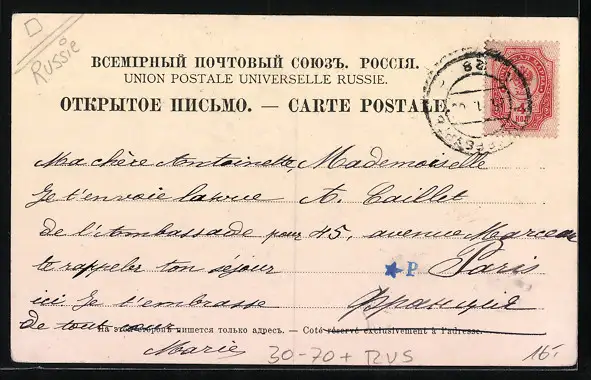 Russie
ВСЕМІРНЫЙ ПОЧТОВЫЙ СОЮЗЪ. РОССІЯ.
UNION POSTALE UNIVERSELLE RUSSIE.
ОТКРЫТОЕ ПИСЬМО. — CARTE POSTALE
Ma chère Antoinette,
Je t'envoie la vue
de l'Ambassade pour
te rappeler ton séjour
ici Je t'embrasse
de tout cœur
Marie
Mademoiselle
A. Caillet
45, avenue Marceau
Paris
Франція
P
На этой сторонѣ пишется только адресъ. — Coté réservé exclusivement à l'adresse.
30-70+ RUS
15.-